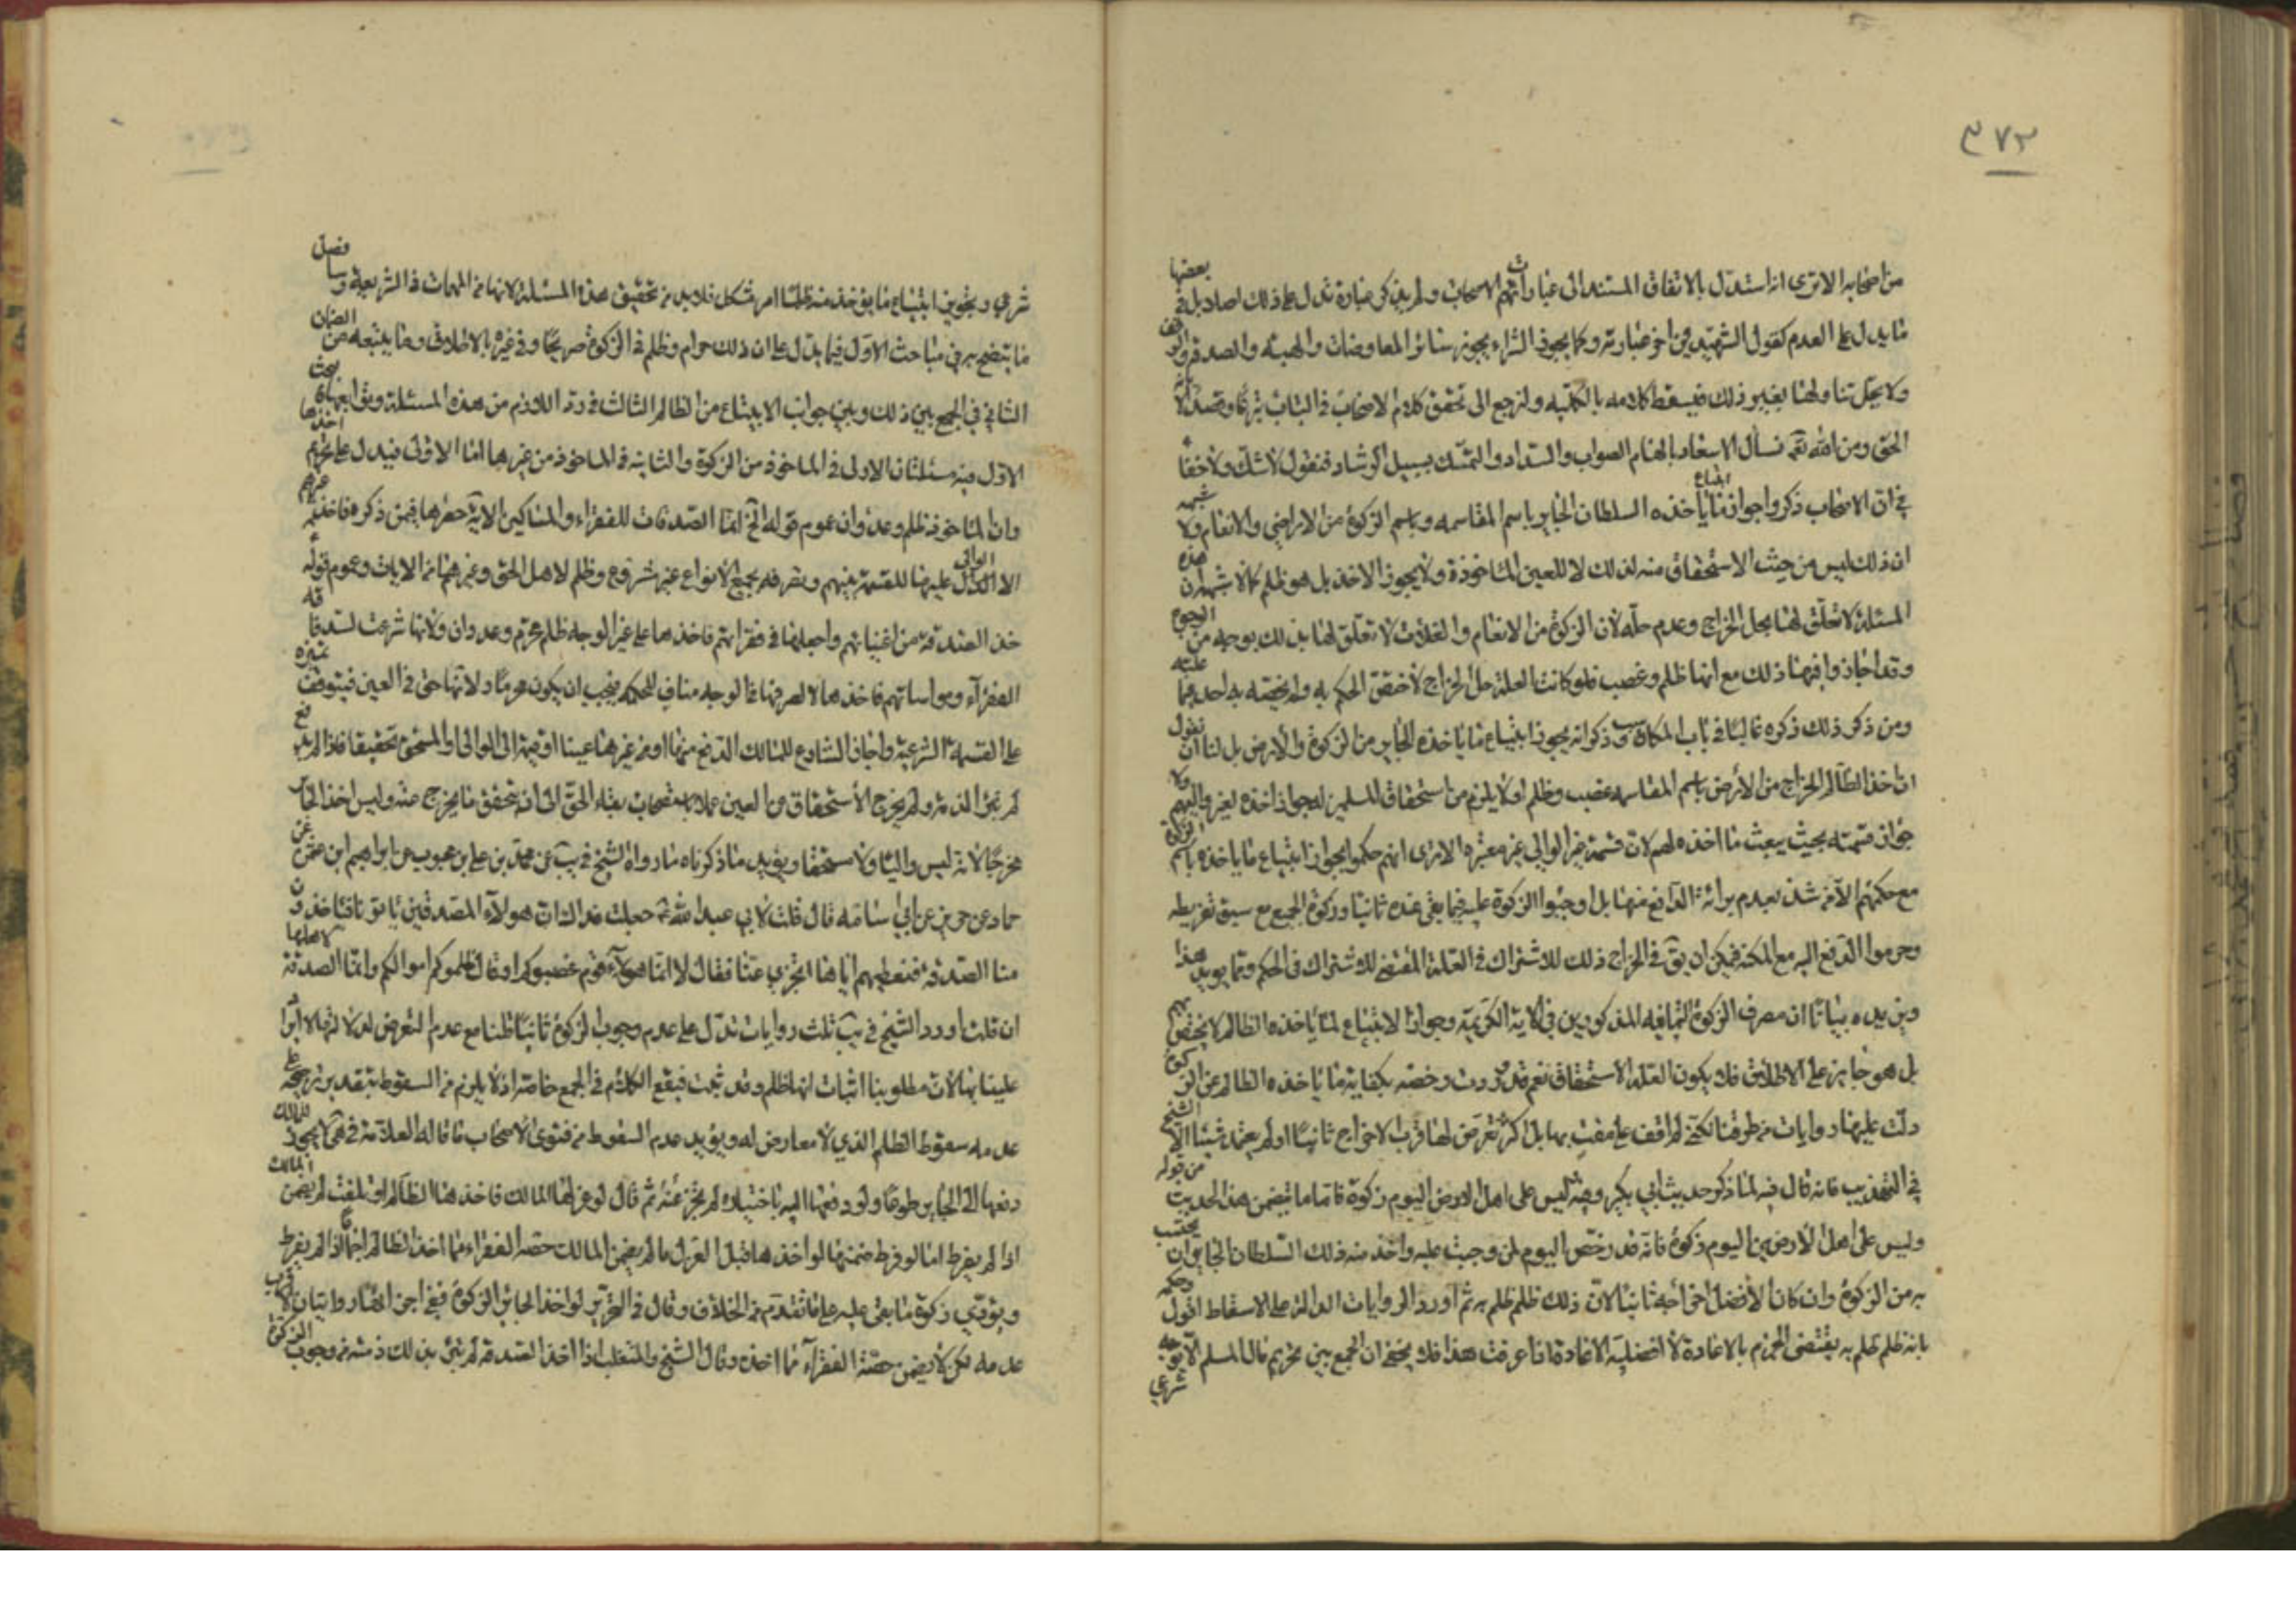 ٣٧٢
من اصحابه الا ترى انه استدل بالاتفاق المستند الى عباراتهم الاصحاب ولم يذكر عبارة تدل على ذلك اصلا بل في بعضها
ما يدل على العدم كقول الشهيد في اخر عبارته وكما يجوز الشراء يجوز سائر المعاوضات والهبة والصدقة والوقف
ولا يحل تناولها بغير ذلك فيسقط كلامه بالكلية ولنرجع الى تحقق كلام الاصحاب في الباب تبرعا وقصدا لاراءة
الحق ومن الله نسأل الاسعاد بالهام الصواب والسداد والتمسك بسبيل الرشاد فنقول لا شك ولا خفاء
في ان الاصحاب ذكروا جواز ابتياع ما ياخذه السلطان الجاير باسم المقاسمه وباسم الزكوة من الاراضي والانعام ولا شبهه
ان ذلك ليس من حيث الاستحقاق منه لذلك لا للعين الماخوذة ولا يجوز الاخذ بل هو ظلم كما لا شبهة ان هذه
المسئلة لا تعلق لها بحل الخراج وعدم حله لان الزكوة من الانعام والغلات لا تعلق لها بذلك بوجه من الوجوه
وقد اجازوا فيها ذلك مع انها ظلم وغصب فلو كانت العلة حل الخراج لاختص الحكم به ولم يخصه به احد ممن علمته
ومن ذكر ذلك ذكره غالبا في باب المكاسب وذكر انه يجوز ابتياع ما ياخذه الجاير من الزكوة والارض بل لنا ان نقول
ان اخذ الظالم الخراج من الأرض باسم المقاسمه غصب وظلم اولا يلزم من استحقاق المسلمين له جواز اخذه لغير واليهم ولا
جواز قسمته بحيث يبعث ما اخذه لهم لان قسمة غير الوالي غير معتبره الا ترى انهم حكموا بجواز ابتياع ما ياخذه باسم الزكوة
مع حكمهم الا من شذ بعدم برائة الدافع منها بل اوجبوا الزكوة عليه فيما بقي عنده ثانيا وزكوة الجميع مع سبق تفريطه
وحرموا الدفع اليه مع المكنة فيمكن ان يق في الخراج ذلك للاشتراك في العلة المقتضي للاشتراك في الحكم ومما يويد هذا
ويزيده بيانا ان مصرف الزكوة الثمانيه المذكورين في الاية الكريمة وجواز الابتياع لما ياخذه الظالم لا يختص بهم
بل هو جايز على الاطلاق فلا يكون العلة الاستحقاق نعم قد وردت رخصه بكفاية ما ياخذه الظالم عن الزكوة
دلت عليها روايات من طرقنا لكني لم اقف على مفت بها بل اكثر تعرض لها قرب الاخراج ثانيا او لم يعتمد شيئا الا الشيخ
في التهذيب فانه قال فيه لما ذكر حديث ابي بكير وفيه ليس على اهل الارض اليوم زكوة فاما ما تضمن هذا الحديث من قوله
وليس على اهل الأرضين اليوم زكوة فانه قد رخص اليوم لمن وجبت عليه واخذ منه ذلك السلطان الجاير ان يحتسب
به من الزكوة وان كان الأفضل اخراجه ثانيا لان ذلك ظلم ظلم به ثم اورد الروايات الدالة على الاسقاط اقول وحكمه
بانه ظلم ظلم به يقتضي الجزم بالاعادة لا افضلية الاعادة اذا عرفت هذا فلا يخفى ان الجمع بين تحريم مال المسلم الا بوجه
شرعي
شرعي وتجويز ابتياع ما يؤخذ منه ظلما امر مشكل فلا بد من تحقيق هذه المسئلة لانها من المهمات في الشريعة وسافصل
ما يتضح به في مباحث الاول فيما يدل على ان ذلك حرام وظلم في الزكوة صريحا وفي غيره بالاطلاق وما يتبعه من الضمان
الثاني في الجمع بين ذلك وبين جواز الابتياع من الظالم الثالث في رد اللازم من هذه المسئلة وتوابعها بحث
الاول فيه مسئلتان الاولى في الماخوذ من الزكوة والثانيه في الماخوذ من غيرها اما الاولى فيدل على تحريم اخذها
وان الماخوذ ظلم وعدوان عموم قوله تع انما الصدقات للفقراء والمساكين الاية حصرها فيمن ذكره فاخذ غيرهم
الا الوالي عليها للقسمة بينهم وتفرقه بجميع الانواع غير مشروع وظلم لاهل الحق وغيرهما من الايات وعموم قوله
خذ الصدقة من اغنيائهم واجعلها في فقرائهم فاخذها على غير الوجه ظلم محرم وعدوان ولانها شرعت لسد فاقة
الفقراء ومواساتهم فاخذها لا لصرفها على الوجه مناف للحكم فيجب ان يكون محرما ولانها حق في العين فيتوقف تميزه
على القسمة الشرعية واجاز الشارع للمالك الدفع منها او من غيرها عينا او قيمة الى الوالي او المستحق تحقيقا فاذا لم يدفع
لم تبرئ الذمة ولم يخرج الأستحقاق من العين عملا باستصحاب بقاء الحق الى ان يتحقق ما يخرج عنه وليس اخذ الجاير
مخرجا لانه ليس واليا ولا مستحقا ويؤيد ما ذكرناه ما رواه الشيخ في يب عن محمد بن علي بن محبوب عن ابراهيم ابن عثمن عن
حماد عن حريز عن ابي اسامه قال قلت لابي عبد الله ع جعلت فداك ان هولاء المصدقين يأتونا فياخذون
منا الصدقه فنعطيهم اياها اتجزي عنا فقال لا انما هولاء قوم غصبوكم او قال ظلموكم اموالكم وانما الصدقة لاهلها
ان قلت اورد الشيخ في يب ثلث روايات تدل على عدم وجوب الزكوة ثانيا قلنا مع عدم التعرض لدلالتها لا ايراد
علينا بها لان مطلوبنا اثبات انها ظلم وقد ثبت فيقع الكلام في الجمع خاصة اذ لا يلزم من السقوط بتقدير ترجيحه على
عدمه سقوط الظلم الذي لا معارض له ويؤيد عدم السقوط من فتوى الاصحاب ما قاله العلامة في هى لا يجوز للمالك
دفعها الى الجاير طوعا ولو دفعها اليه باختياره لم يجز عنه ثم قال لو عزلها المالك فاخذها الظالم او تلفت لم يضمن المالك
اذا لم يفرط اما لو فرط ضمنها لو اخذها قبل العزل ما لم يضمن المالك حصة الفقراء مما اخذ الظالم اجماعا اذا لم يفرط
ويؤدي زكوة ما بقى عليه على ما تقدم من الخلاف وقال في التحرير لو اخذ الجائر الزكوة ففي اجزائها روايتان الاقرب
عدمه لكن لا يضمن حصة الفقراء مما اخذه وقال الشيخ والمتغلب اذا اخذ الصدقه لم تبرئ بذلك ذمته من وجوب الزكوة